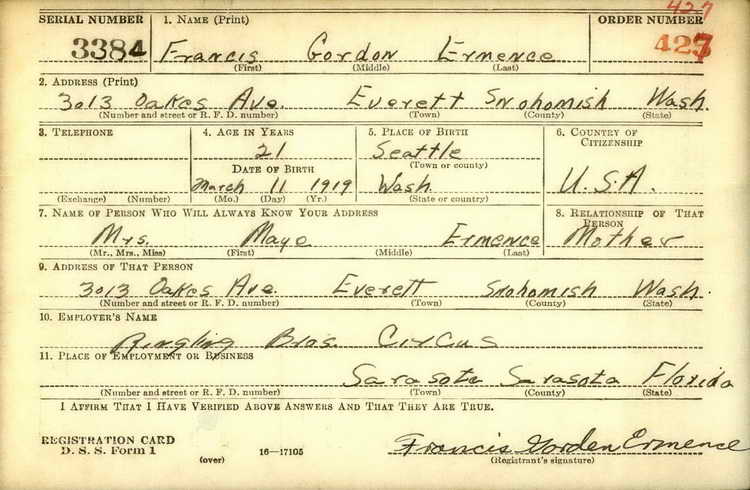 427
SERIAL NUMBER 1. NAME (Print) ORDER NUMBER
3384 Francis Gordon Ermence 427
(First) (Middle) (Last)
2. ADDRESS (Print)
3013 Oakes Ave. Everett Snohomish Wash.
(Number and street or R. F. D. number) (Town) (County) (State)
3. TELEPHONE 4. AGE IN YEARS 5. PLACE OF BIRTH 6. COUNTRY OF CITIZENSHIP
21 Seattle
(Town or county)
DATE OF BIRTH
March 11 1919 Wash. U.S.A.
(Exchange) (Number) (Mo.) (Day) (Yr.) (State or country)
7. NAME OF PERSON WHO WILL ALWAYS KNOW YOUR ADDRESS 8. RELATIONSHIP OF THAT PERSON
Mrs. Maye Ermence Mother
(Mr., Mrs., Miss) (First) (Middle) (Last)
9. ADDRESS OF THAT PERSON
3013 Oakes Ave. Everett Snohomish Wash.
(Number and street or R. F. D. number) (Town) (County) (State)
10. EMPLOYER'S NAME
Ringling Bros. Circus
11. PLACE OF EMPLOYMENT OR BUSINESS
Sarasota Sarasota Florida
(Number and street or R. F. D. number) (Town) (County) (State)
I AFFIRM THAT I HAVE VERIFIED ABOVE ANSWERS AND THAT THEY ARE TRUE.
REGISTRATION CARD
D. S. S. Form 1 (over) 16—17105 Francis Gorden Ermence
(Registrant's signature)